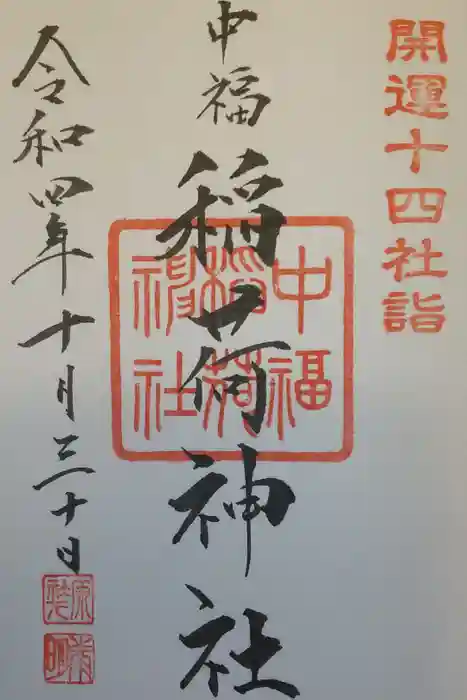 開運十四社詣
中福
稲荷神社
中福
稲荷
神社
令和四年十月三十日